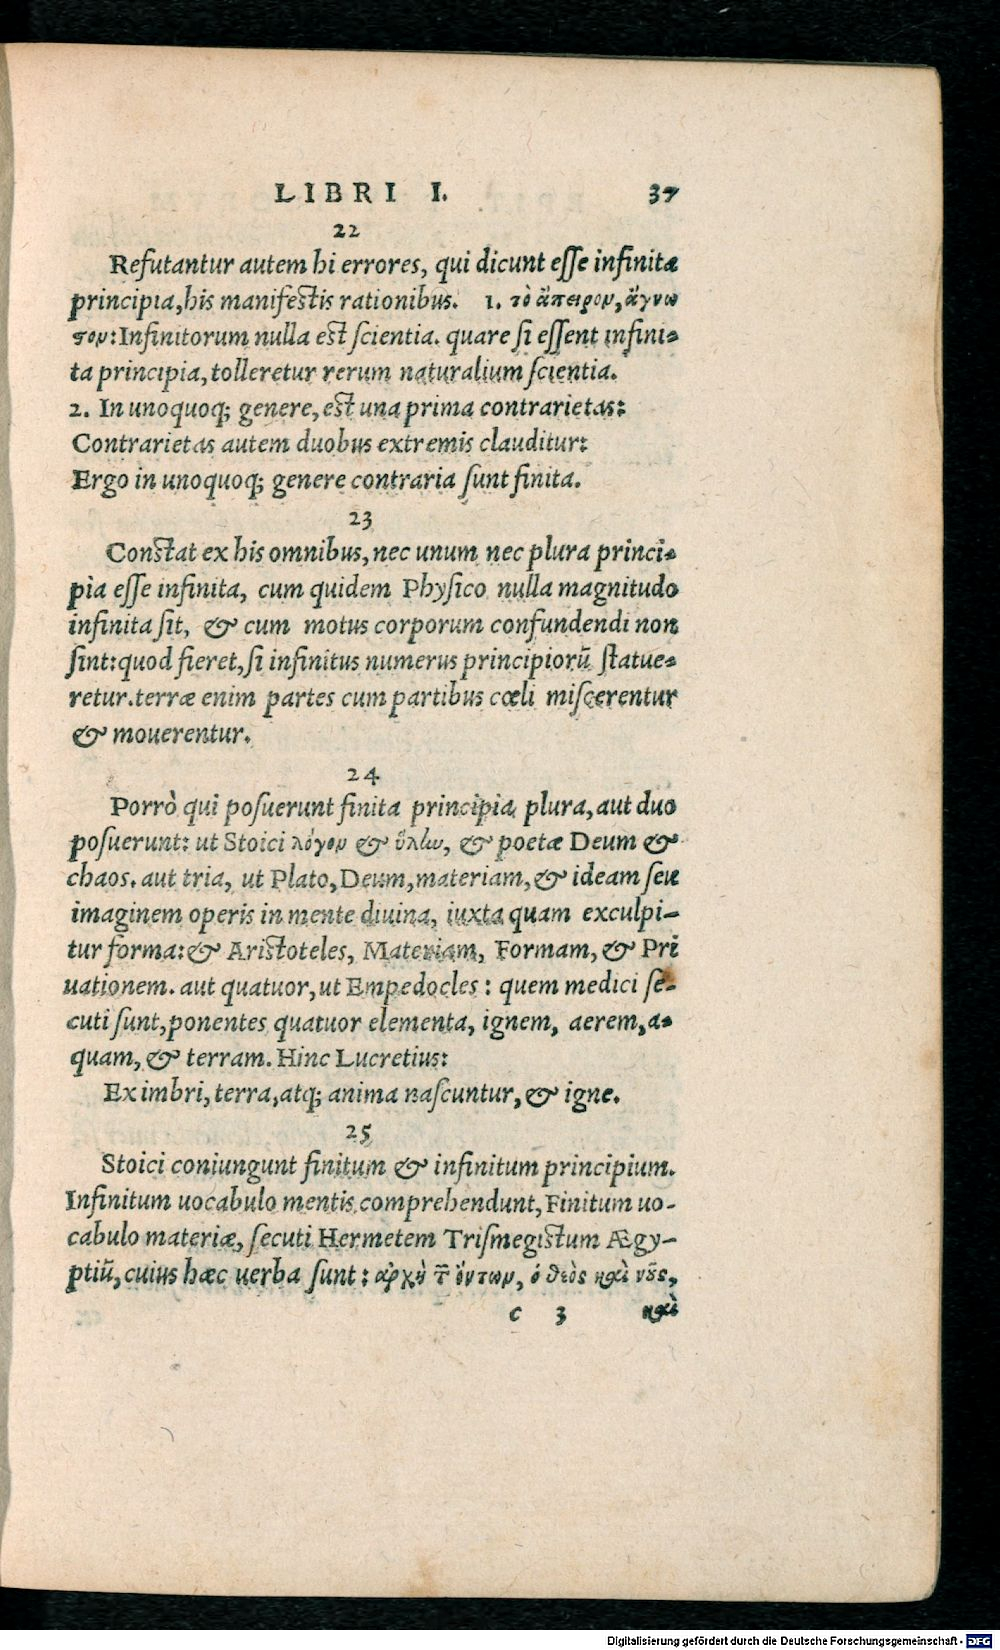 LIBRI I. 37
22
Refutantur autem hi errores, qui dicunt esse infinita
principia, his manifestis rationibus. 1. τὸ ἄπειρον, ἄγνω
στον: Infinitorum nulla est scientia. quare si essent infini-
ta principia, tolleretur rerum naturalium scientia.
2. In unoquoq; genere, est una prima contrarietas:
Contrarietas autem duobus extremis clauditur:
Ergo in unoquoq; genere contraria sunt finita.
23
Constat ex his omnibus, nec unum nec plura princi-
pia esse infinita, cum quidem Physico nulla magnitudo
infinita sit, & cum motus corporum confundendi non
sint: quod fieret, si infinitus numerus principiorũ statue-
retur. terræ enim partes cum partibus cœli miscerentur
& mouerentur.
24
Porrò qui posuerunt finita principia plura, aut duo
posuerunt: ut Stoici λόγον & ὕλην, & poetæ Deum &
chaos. aut tria, ut Plato, Deum, materiam, & ideam seu
imaginem operis in mente diuina, iuxta quam exculpi-
tur forma: & Aristoteles, Materiam, Formam, & Pri
uationem. aut quatuor, ut Empedocles: quem medici se-
cuti sunt, ponentes quatuor elementa, ignem, aerem, a-
quam, & terram. Hinc Lucretius:
Ex imbri, terra, atq; anima nascuntur, & igne.
25
Stoici coniungunt finitum & infinitum principium.
Infinitum uocabulo mentis comprehendunt, Finitum uo-
cabulo materiæ, secuti Hermetem Trismegistum Ægy-
ptiũ, cuius hæc uerba sunt: ἀρχὴ τ͂ ὄντων, ὁ θεὸς καὶ νȣ͂ς,
c 3 καὶ
Digitalisierung gefördert durch die Deutsche Forschungsgemeinschaft - DFG